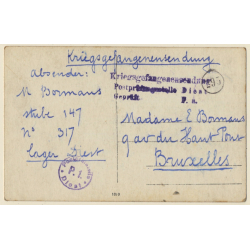 Kriegsgefangenensendung
Absender:
M Bormans
stube 147
N° 317
Lager Diest
Kriegsgefangenensendung
Postprüfungsstelle Diest
Geprüft F. a.
Madame E Bormans
9 av du Haut-Pont
Bruxelles
Diest
P.1.